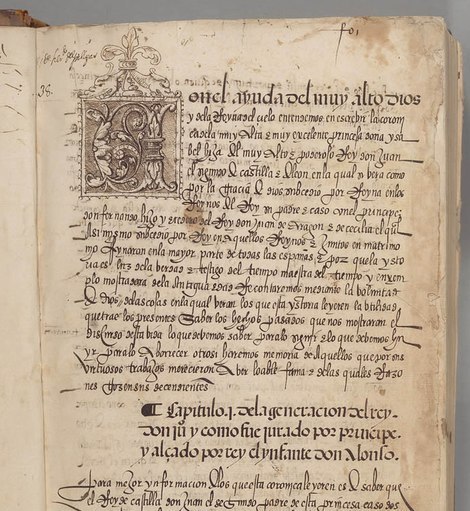 fo 1
38.
on el ayuda del muy alto dios
y dela Reyna del cielo entendemos en escrebir la coron
ca de la muy Alta e muy excelente princesa doña ysa
bel hija del muy Alto e poderoso Rey don Juan
el segundo de castilla e de leon en la qual se vera como
por la gracia de dios subcedio por Reyna en los
Reynos del Rey su padre e caso con el principe
don fernando hijo y eredero del Rey don Juan de aragon e de cecilia el qual
Asi mismo subcedio por Rey en Aquellos Reynos e juntos en matrimo
nio Reynaron en la mayor parte de todas las españas e por que la ysto
ria es luz de la berdad e testigo del tiempo maestra del tiempo y enxem
plo mostradora de la Antiguedad Recontaremos mediante la boluntad
de dios de las cosas en la qual veran los que esta ystoria leyeren la vtilidad
que trae los presentes saber los hechos pasados que nos mostraron el
discurso desta vida lo que debemos saber para lo seguir e lo que debemos hu
yr para lo Aborrecer otrosi haremos memoria de Aquellos que por sus
virtuosos trabajos merecieron Aber loable fama e de las quales Razo
nes gozen sus decendientes
¶ Capitulo .1. dela generacion del rey
don juº y como fue jurado por principe
y alçado por rey el ynfante don Alonso.
Para mejor ynformacion de los que esta coronica leyeren es de saber que
el Rey de castilla don Juan el segundo padre de esta princesa caso dos